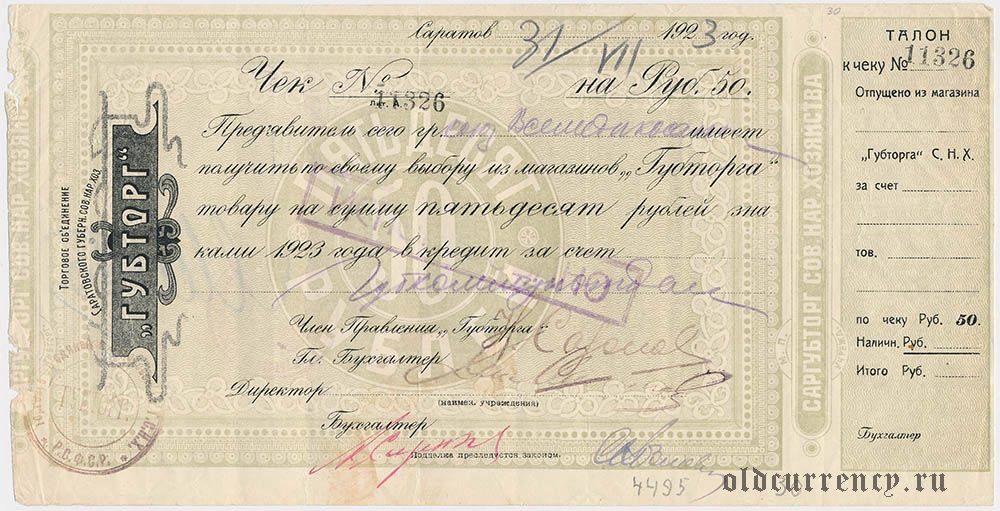 Саратов 31/VII 1923 год.
Чек № 11326 на Руб. 50.
Лит. А.
Предъявитель сего гр. имеет
получить по своему выбору из магазинов „Губторга“
товару на сумму пятьдесят рублей зна
ками 1923 года в кредит за счет
Член Правления „Губторга“
Гл. Бухгалтер
Директор
(наимен. учреждения)
Бухгалтер
Подделка преследуется законом.
4495
ТОРГОВОЕ ОБ'ЕДИНЕНИЕ
САРАТОВСКОГО ГУБЕРН. СОВ. НАР. ХОЗ.
„ГУБТОРГ“
ПЯТЬДЕСЯТ
50
РУБЛЕЙ
Р.С.Ф.С.Р.
САРГБТОРГ СОВ НАР ХОЗЯЙСТВА
30
ТАЛОН
к чеку № 11326
Отпущено из магазина
„Губторга“ С. Н. Х.
за счет
тов.
по чеку Руб. 50.
Наличн. Руб.
Итого Руб.
Бухгалтер
oldcurrency.ru